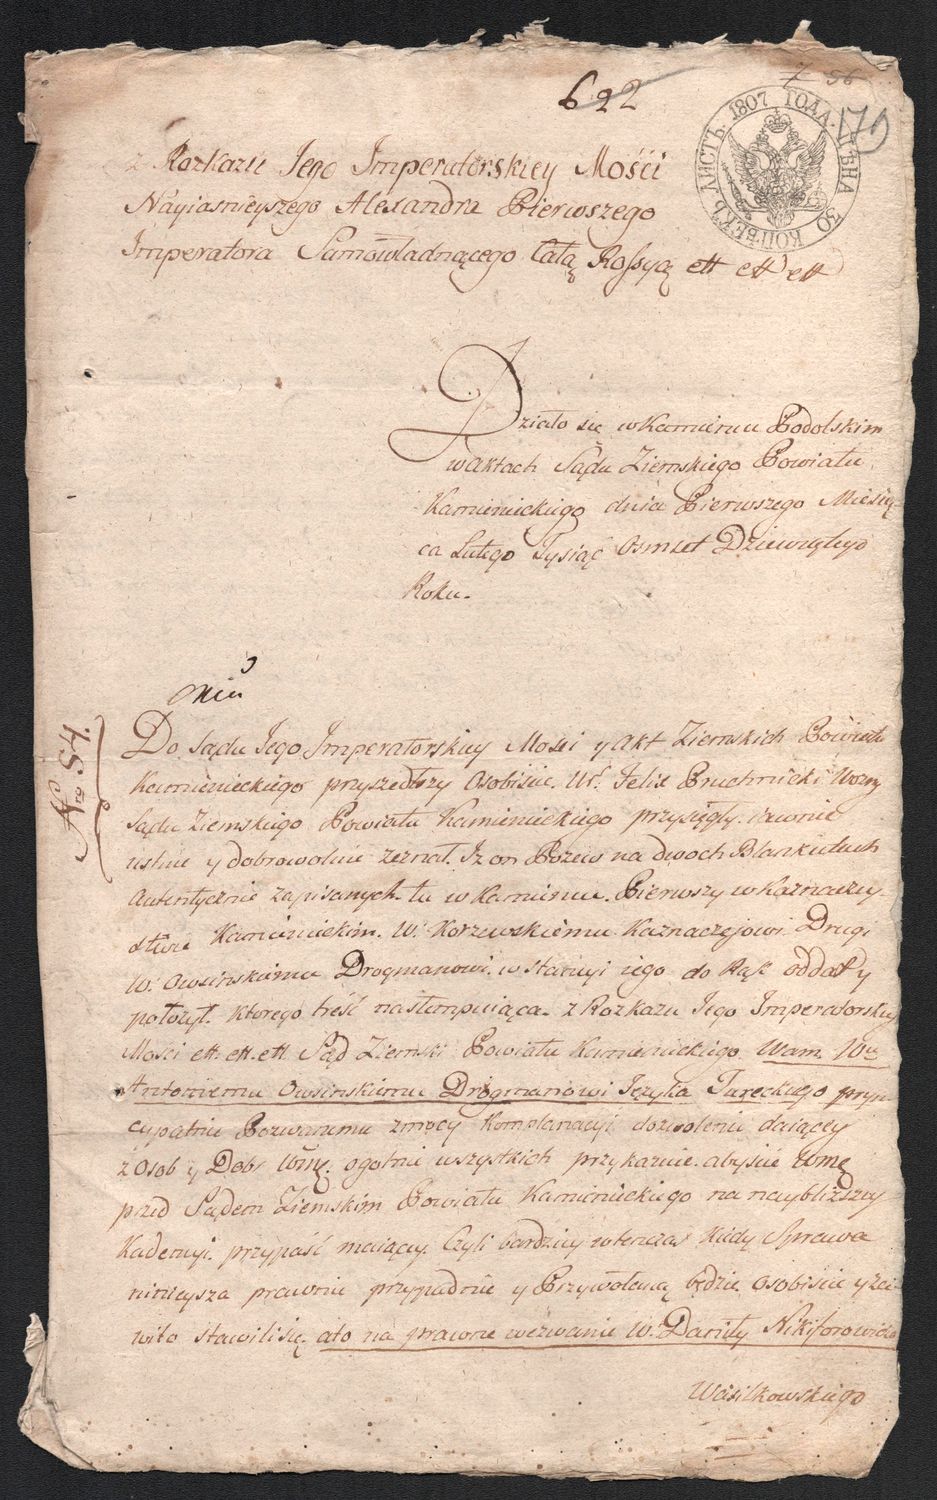 7 56
622
170
ЛИСТЪ. 1807 ГОДА. ЦѢНА 30 КОПѢЕКЪ
z Rozkazu Jego Imperatorskiey Mości
Nayiasnieyszego Alexandra Pierwszego
Imperatora Samowładnącego Całą Rossyą ett ett ett
Działo się w Kamieńcu Podolskim
w aktach Sądu Ziemskiego Powiatu
Kamienieckiego dnia Pierwszego Miesią-
ca Lutego Tysiąc Osmset Dziewiątego
Roku.
Nro 54.
Do Sądu Jego Imperatorskiey Mości y Akt Ziemskich Powiatu
Kamienieckiego przyszedłszy Osobiście. Ur. Felix Pruchnicki Wozny
Sądu Ziemskiego Powiatu Kamienieckiego przysięgły. iawnie
ustnie y dobrowolnie zeznał. Iż on Pozew na dwoch Blankietach
Autentycznie zapisanych. tu w Kamieńcu. Pierwszy w Kaznaczey-
stwie Kamienieckim. W. Korzewskiemu Kaznaczejowi Drugi
W. Owsinskiemu Drogmanowi. w stancyi iego do Rąk oddał y
położył. ktorego treść następuiąca. z Rozkazu Jego Imperatorskiey
Mości ett. ett. ett. Sąd Ziemski Powiatu Kamienieckiego. Wam
Antoniemu Owsinskiemu Drogmanowi Języka Tureckiego pryn-
cypalnie Pozwanemu z mocy Komplanacyi dozwolenie daiącey
z Osob y Dobr ogolnie wszystkich przykazuie. abyście
przed Sądem Ziemskim Powiatu Kamienieckiego na naybliższey
Kadencyi. przypaść maiącey. Czyli bardziey wtenczas kiedy Sprawa
ninieysza prawnie przypadnie y Przywołaną będzie osobiście y za-
wito stawili się. a to na prawne wezwanie W. Daniły Nikiforowicza
Wasilkowskiego